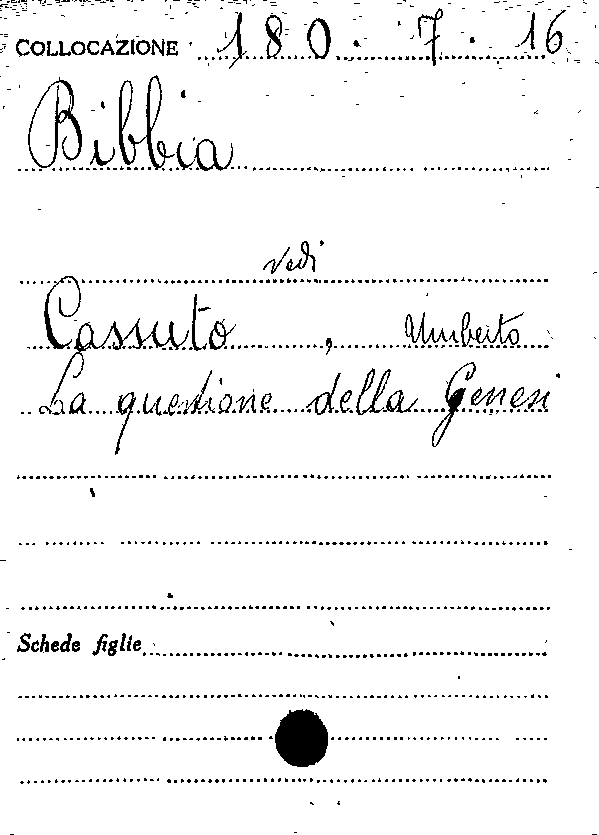 COLLOCAZIONE 180.7.16
Bibbia
vedi
Cassuto, Umberto
La questione della Genesi
Schede figlie